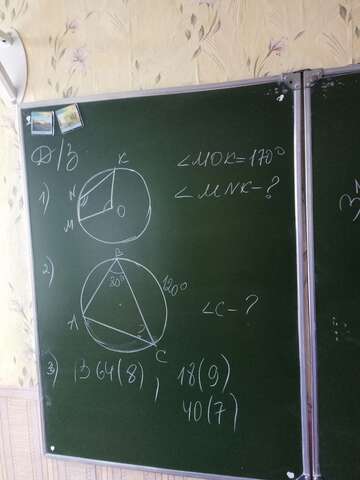 Д/З
1) K N O M ∠MOK=170°
∠MNK-?
2) B 80° 120° A C ? ∠C-?
3) №64(8), 18(9)
40(7)